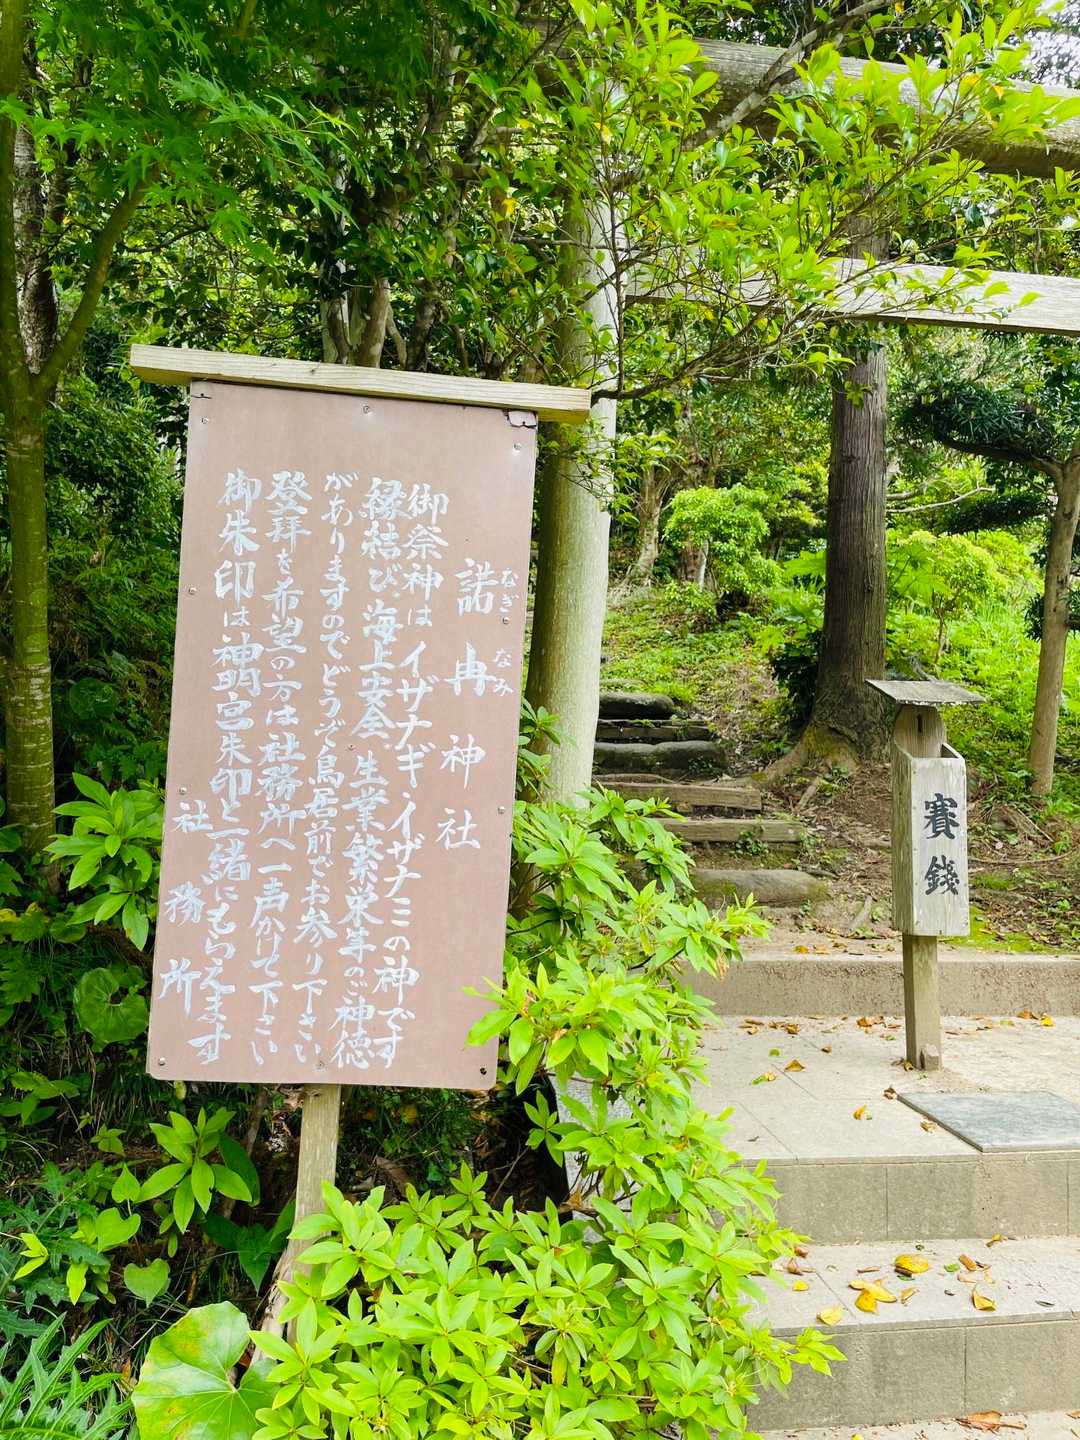 諾冉神社
なぎなみ
御祭神はイザナギ・イザナミの神です
縁結び、海上安全、生業繁栄等のご神徳
がありますのでどうぞ鳥居前でお参り下さい
登拝を希望の方は社務所へ一声かけて下さい
御朱印は神明宮朱印と一緒にもらえます
社務所
賽銭